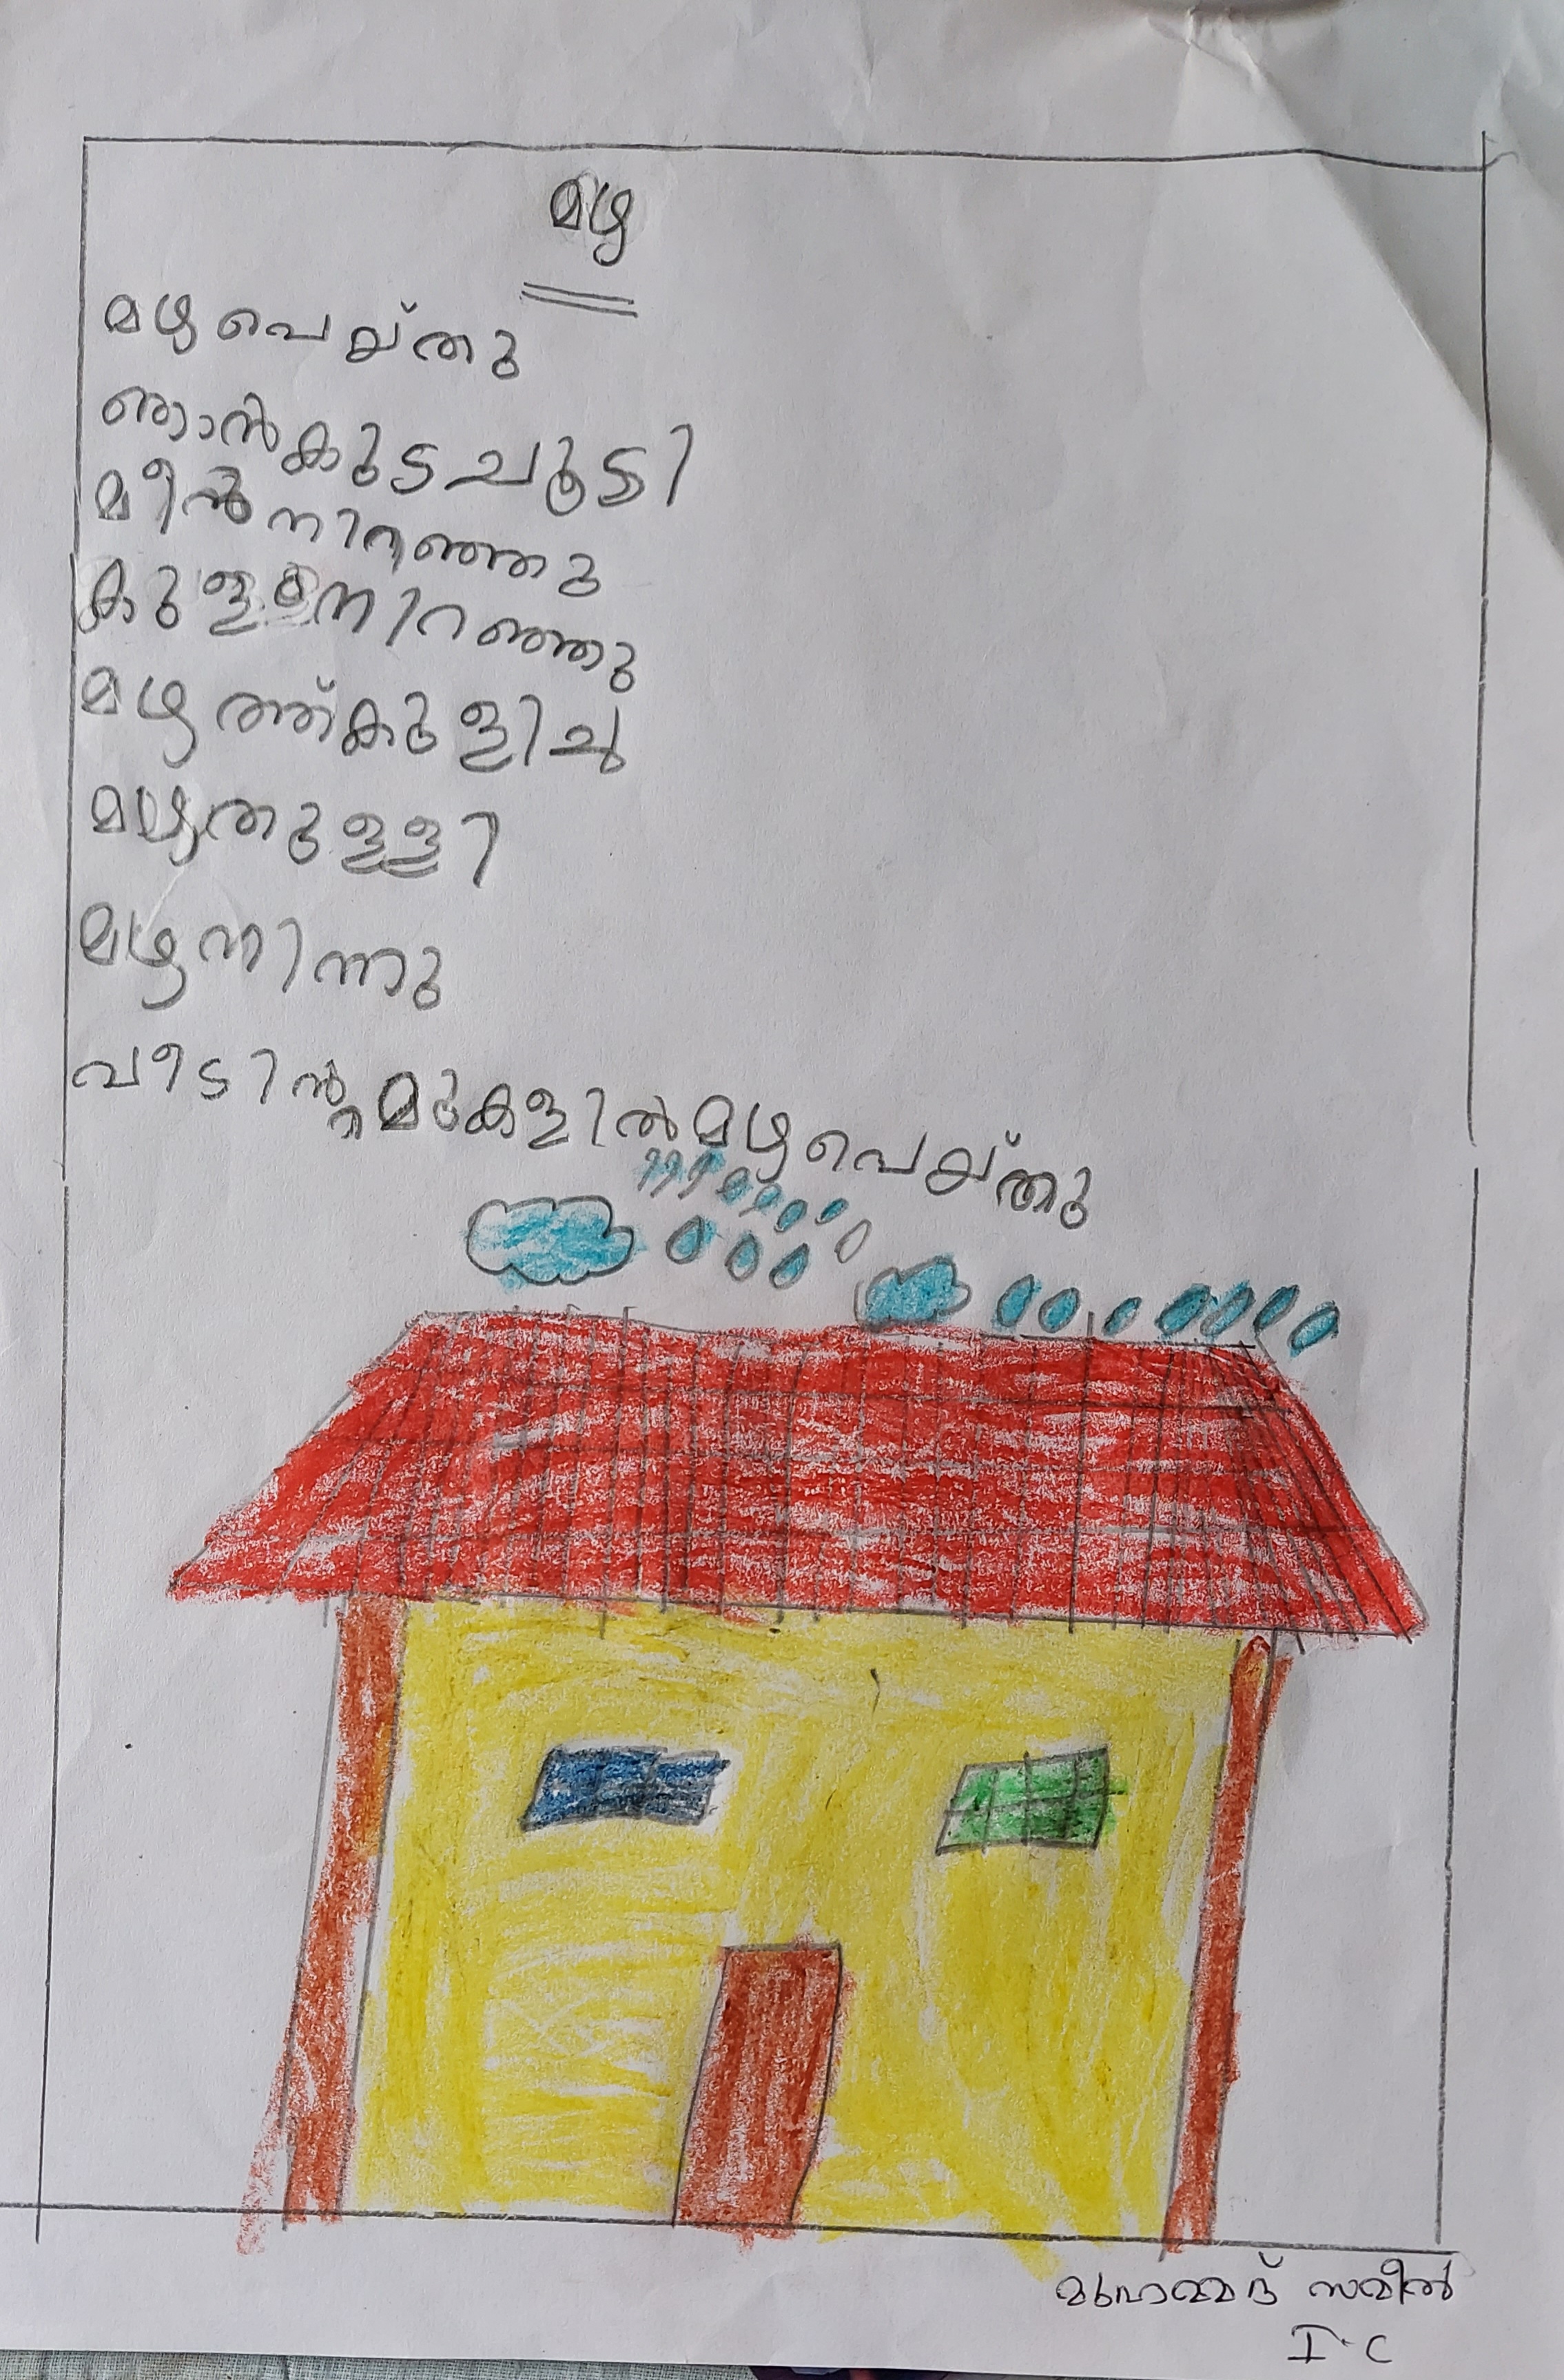 മഴ
മഴപെയ്തു
ഞാൻകുടചൂടി
മീൻനിറഞ്ഞു
കുളംനിറഞ്ഞു
മഴത്ത്കുളിച്ചു
മഴതുള്ളി
മഴനിന്നു
വീടിൻ്റമുകളിൽമഴപെയ്തു
മുഹമ്മദ് സമീൽ
I C